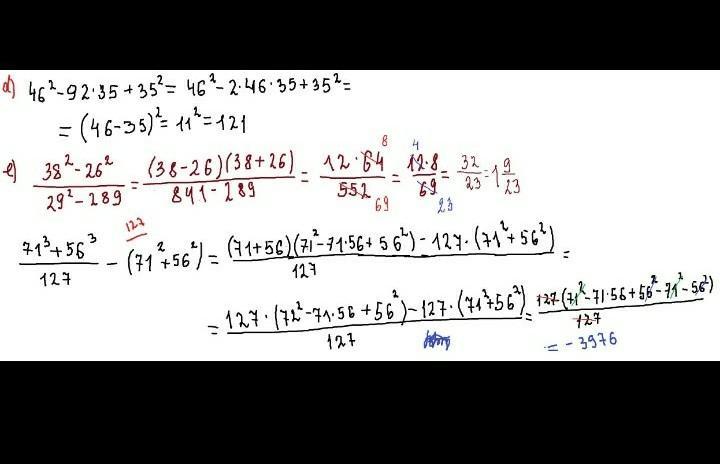 d) 46² - 92·35 + 35² = 46² - 2·46·35 + 35² =
= (46-35)² = 11² = 121
e) (38² - 26²)/(29² - 289) = ((38-26)(38+26))/(841 - 289) = (12·64 8)/(552 69) = (12 4·8)/(69 23) = 32/23 = 1 9/23
(71³ + 56³)/127 - 127 (71² + 56²) = ((71+56)(71² - 71·56 + 56²) - 127·(71² + 56²))/127 =
= (127·(72² - 71·56 + 56²) - 127·(71² + 56²))/127 = (127(71² - 71·56 + 56² - 71² - 56²))/127
= - 3976